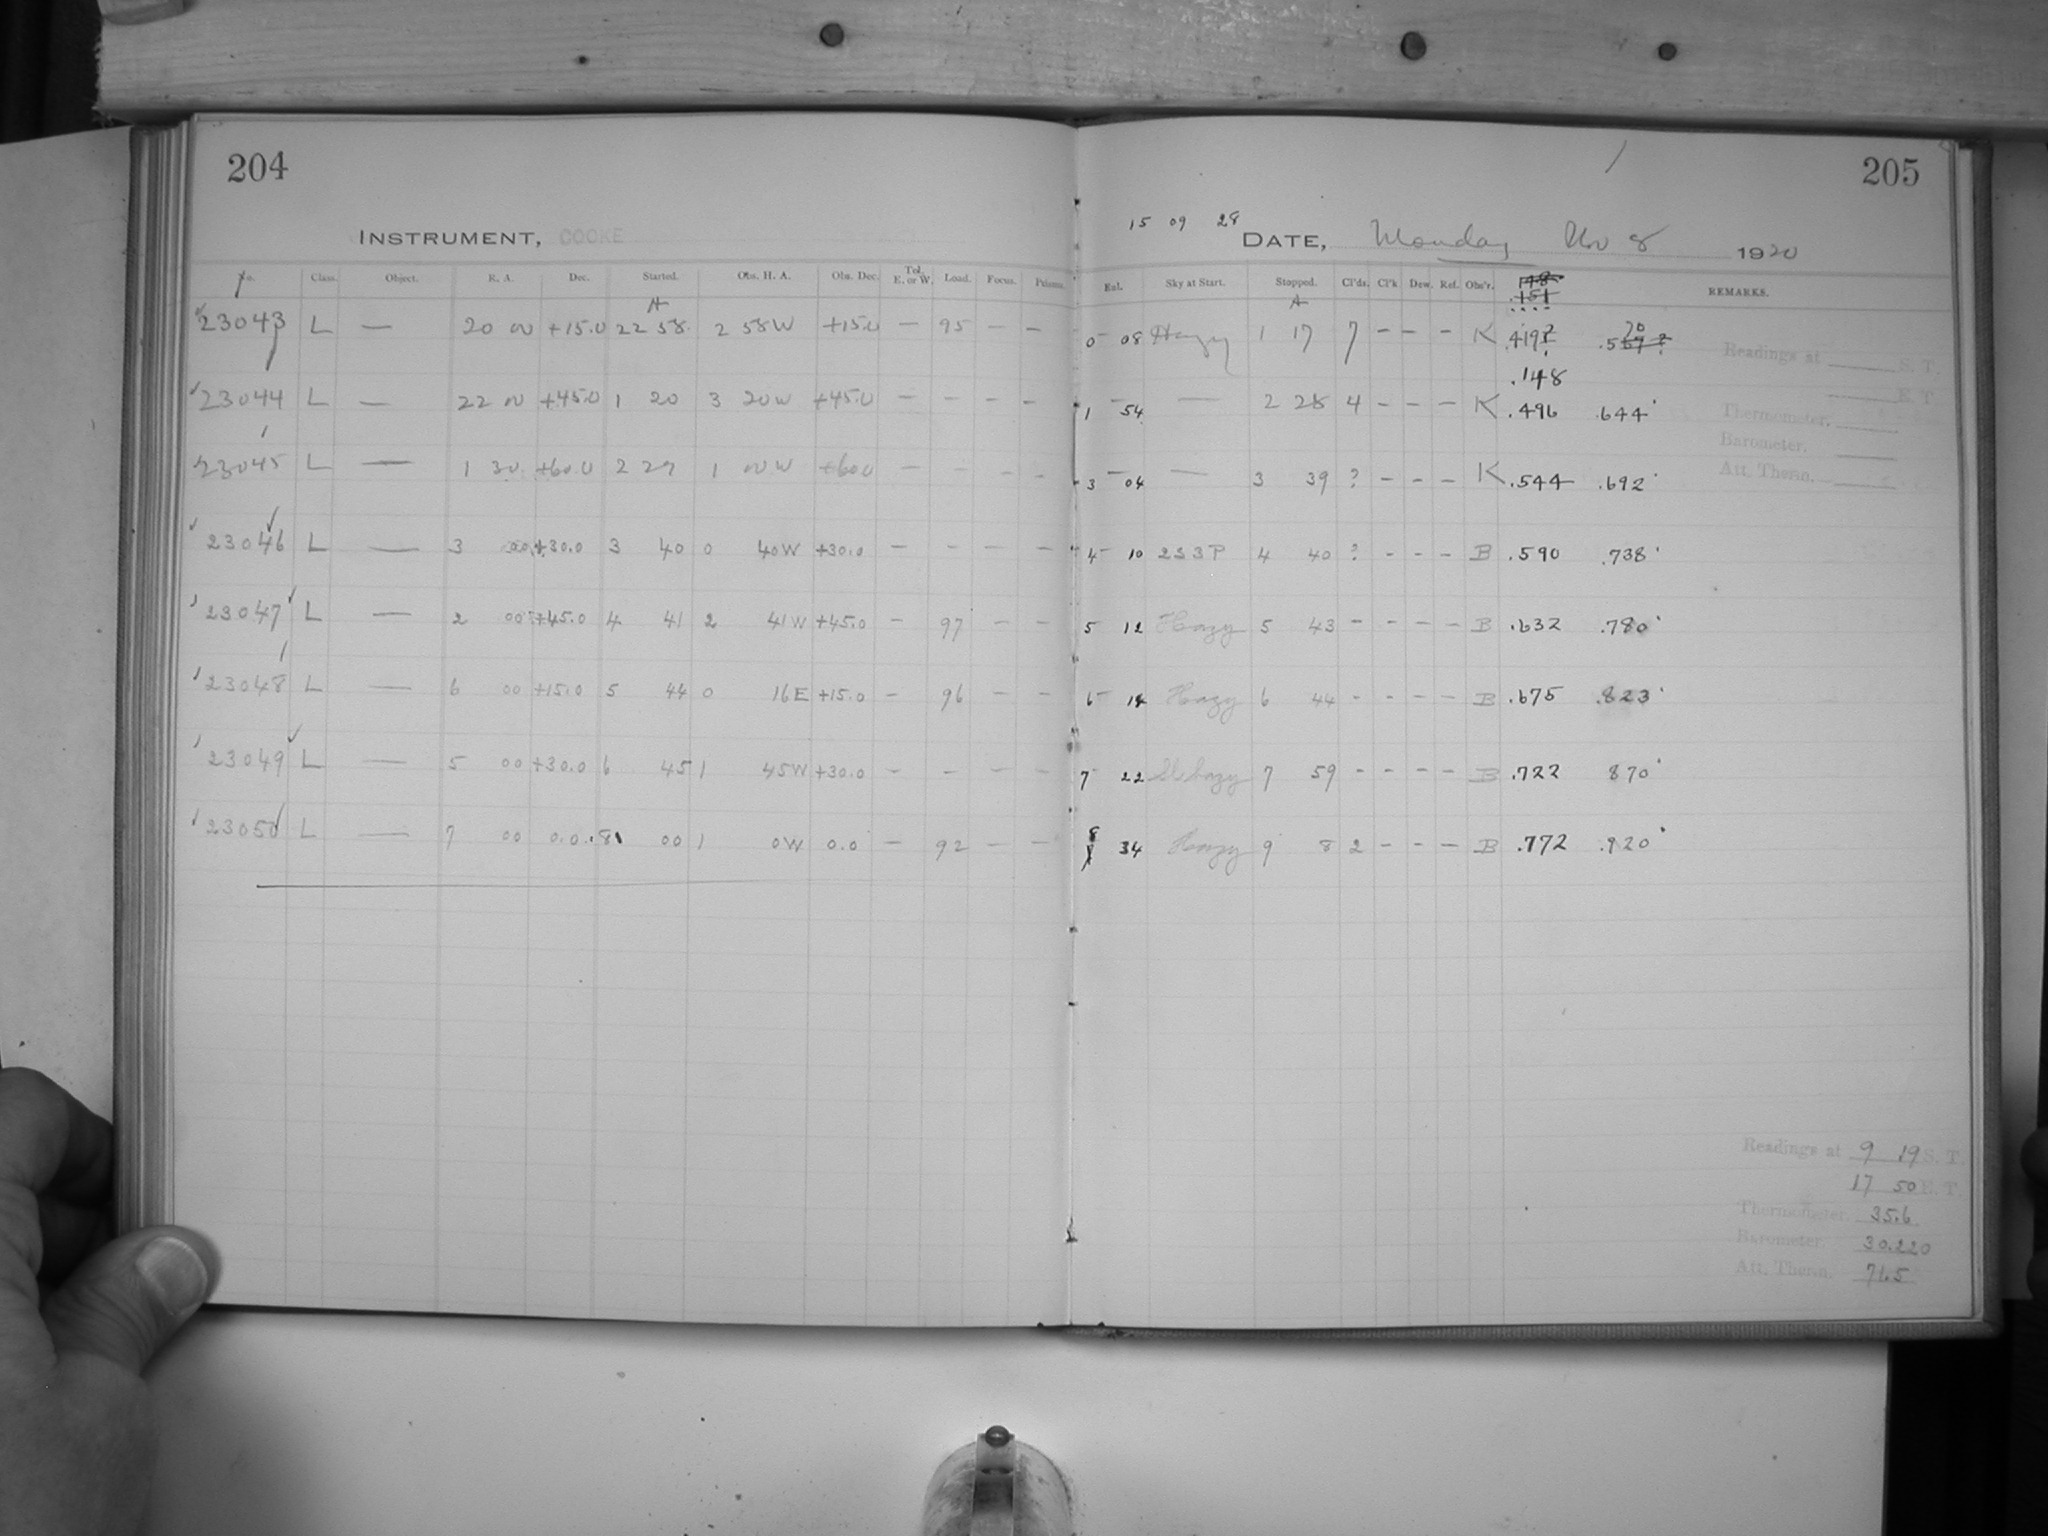 204
INSTRUMENT, COOKE
No. Class. Object. R. A. Dec. Started. Obs. H. A. Obs. Dec. Tel. E. or W. Load. Focus. Prisms.
A
23043 L — 20 00 +15.0 22 58 2 58W +15.0 — 95 — —
23044 L — 22 00 +45.0 1 20 3 20W +45.0 — — — —
23045 L — 1 30 +60.0 2 29 1 00W +60.0 — — — —
23046 L — 3 00 +30.0 3 40 0 40W +30.0 — — — —
23047 L — 2 00 +45.0 4 41 2 41W +45.0 — 97 — —
23048 L — 6 00 +15.0 5 44 0 16E +15.0 — 96 — —
23049 L — 5 00 +30.0 6 45 1 45W +30.0 — — — —
23050 L — 7 00 0.0 8 00 1 0W 0.0 — 92 — —
205
15 09 28
DATE, Monday Nov 8 1920
Exl. Sky at Start. Stopped. Cl'ds. Cl'k Dew. Ref. Obs'r. 148 REMARKS.
.151
A
0 08 Hazy 1 17 7 — — — K .419? .5 70
.148
1 54 — 2 28 4 — — — K .496 .644
3 04 — 3 39 ? — — — K .544 .692
4 10 2S3P 4 40 ? — — — B .590 .738
5 12 Hazy 5 43 — — — — B .632 .780
6 14 Hazy 6 44 — — — — B .675 .823
7 22 Sl hazy 7 59 — — — — B .722 870
8 34 Hazy 9 8 2 — — — B .772 .920
Readings at S. T.
E. T.
Thermometer.
Barometer.
Att. Therm.
Readings at 9 19 S. T.
17 50 E. T.
Thermometer. 35.6
Barometer. 30.220
Att. Therm. 71.5